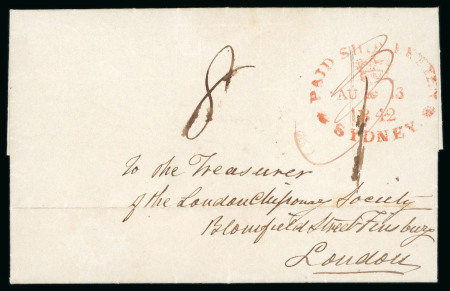 8
PAID SHIP LETTER
AU 3
1842
SYDNEY
To the Treasurer
of the London Missionary Society
Blomfield Street Finsbury
London